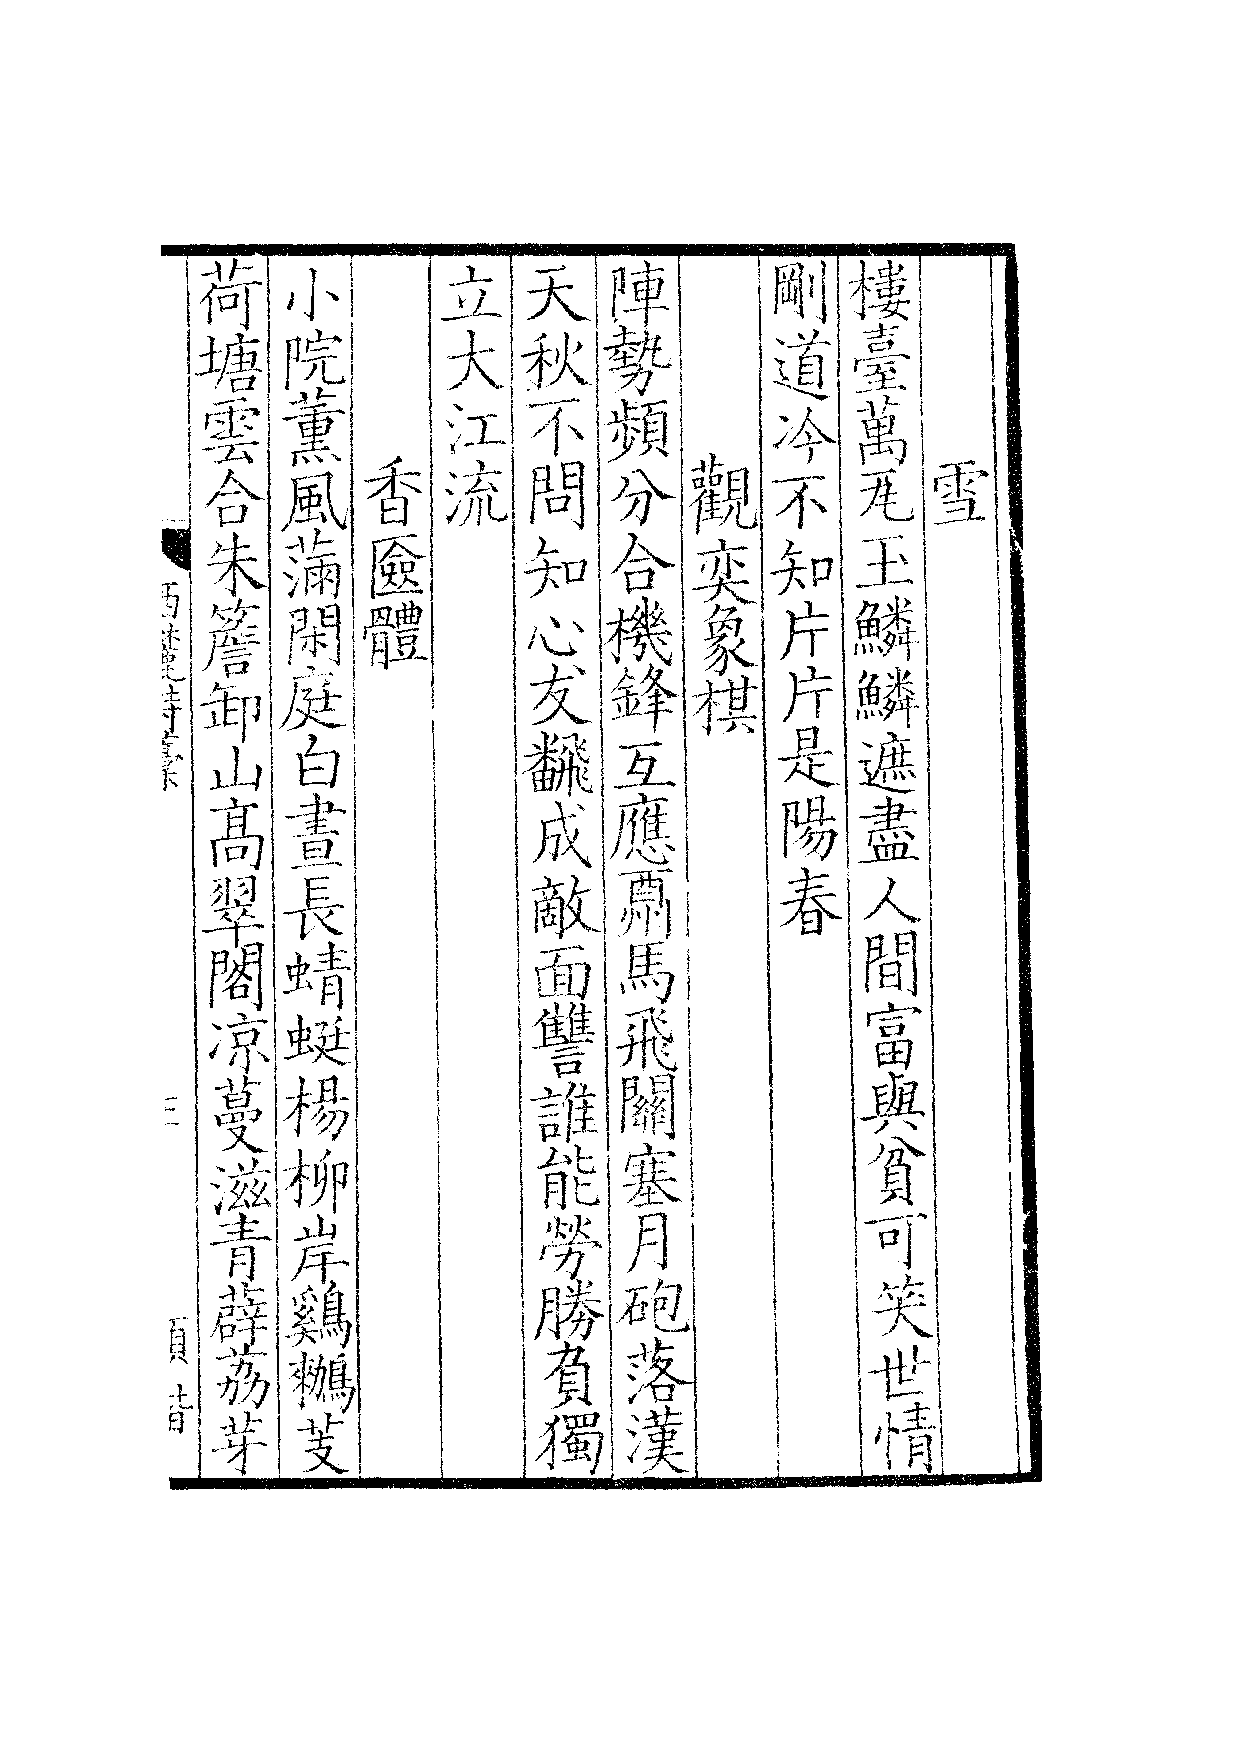 雪
樓臺萬瓦玉鱗鱗遮盡人間富與貧可笑世情
剛道冷不知片片是陽春
觀奕象棋
陣勢頻分合機鋒互應酬馬飛關塞月砲落漢
天秋不問知心友飜成敵面讐誰能勞勝負獨
立大江流
香匳體
小院薰風滿閑庭白晝長蜻蜓楊柳岸鸂鶒芰
荷塘雲合朱簷卸山髙翠閣凉蔓滋青薜荔芽